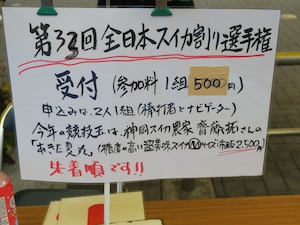 第33回全日本スイカ割り選手権
受付(参加料1組500円)
申込みは、2人1組(棒打者とナビゲーター)
今年の競技玉は、神岡スイカ農家 齋藤拓さんの
「あきた夏丸」(糖度の高い超美味スイカMサイズ:市販2,500円)
先着順です!!